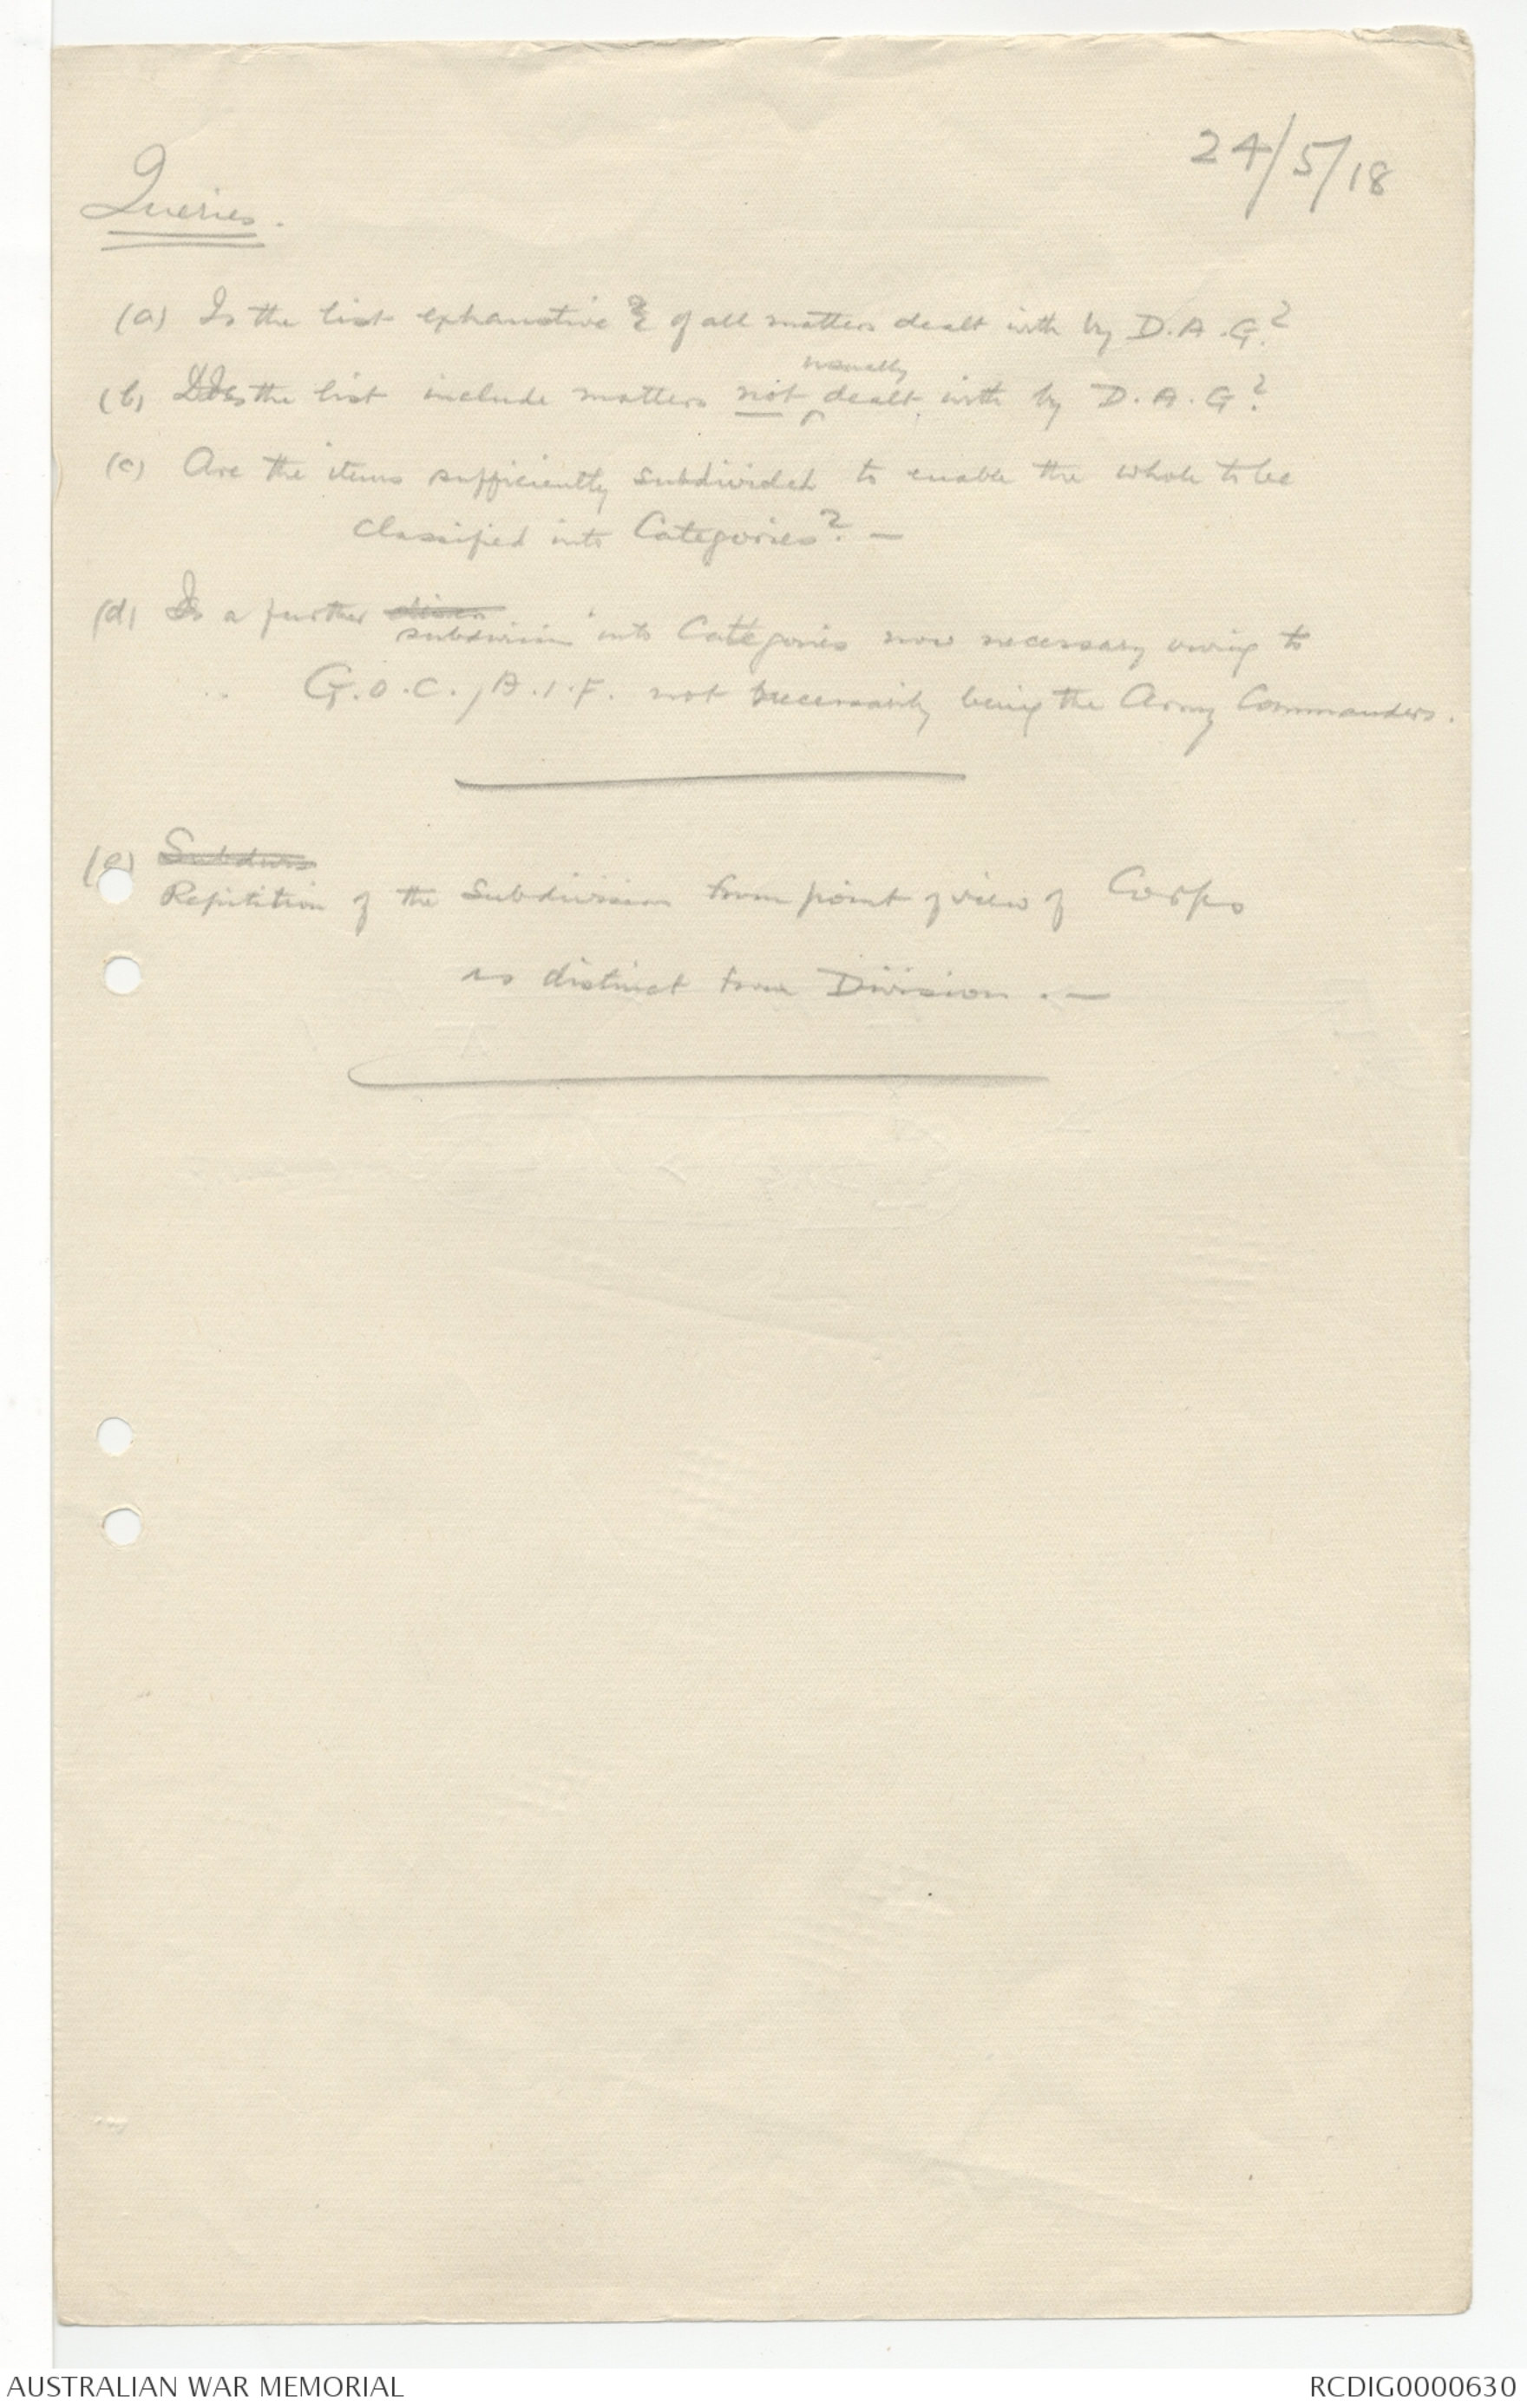 24/5/18
Queries.
(a) Is the list exhaustive of all matters dealt with by D.A.G.?
usually
(b) Does the list include matters not dealt with by D.A.G.?
(c) Are the items sufficiently subdivided to enable the whole to be
classified into Categories? —
(d) Is a further
subdivision into Categories now necessary owing to
G.O.C., A.I.F. not necessarily being the Army Commanders.
(e) Subdivis
Repitition of the Subdivision from point of view of Corps
as distinct from Division. —
AUSTRALIAN WAR MEMORIAL
RCDIG0000630